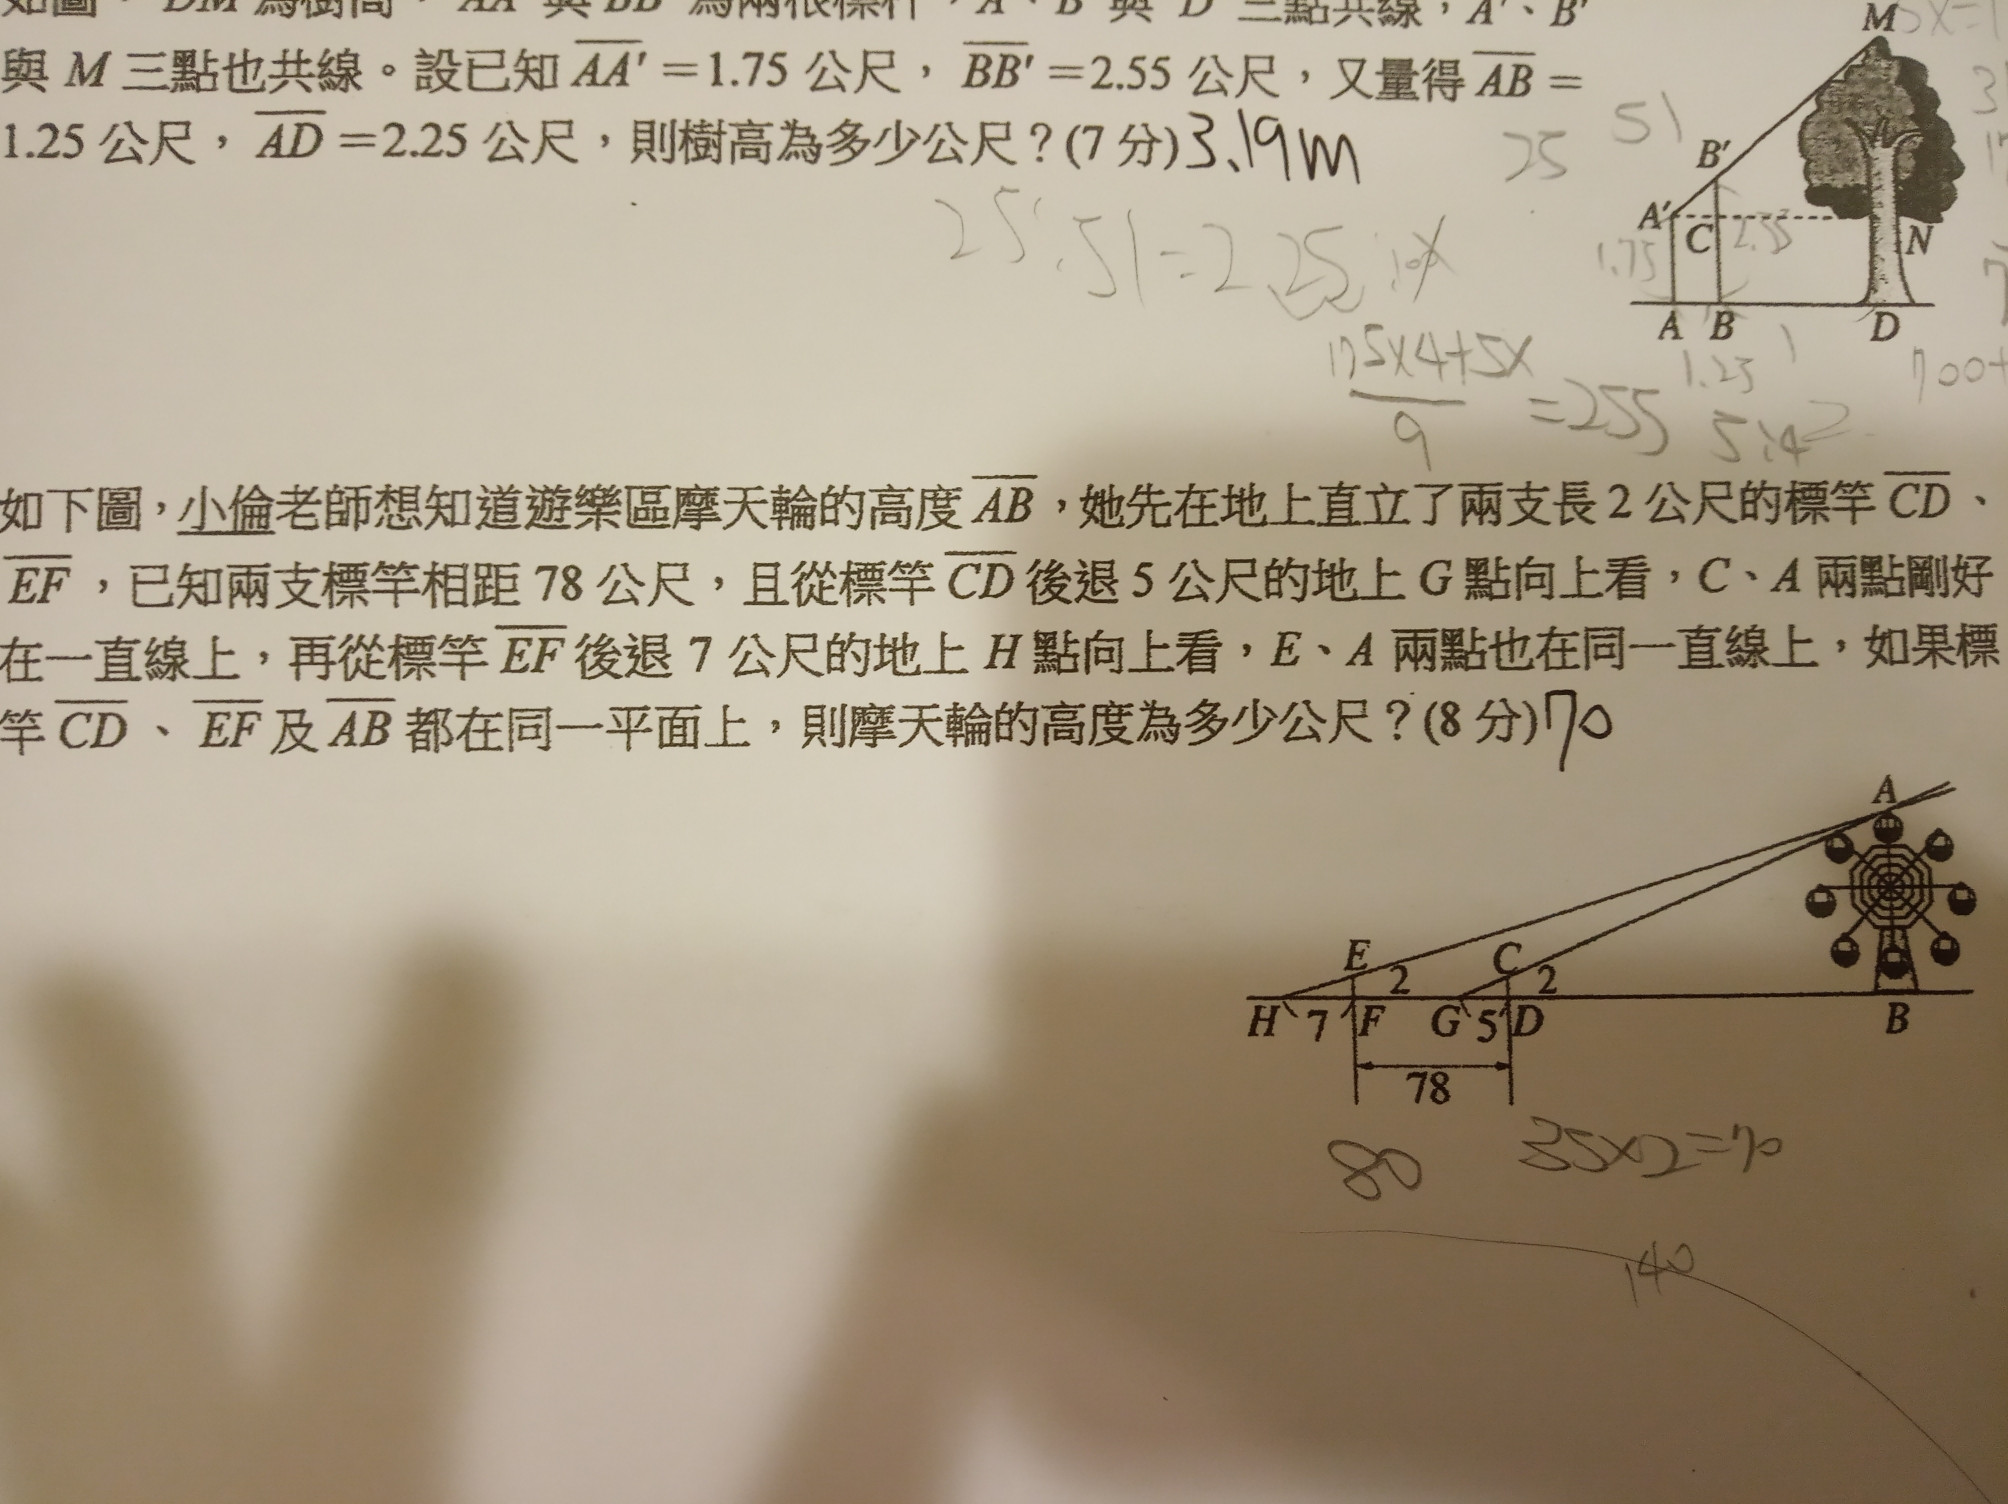 如圖,DM 為樹高,AA' 與 BB' 為兩根標杆,A、B 與 D 三點共線,A'、B'
與 M 三點也共線。設已知 AA' =1.75 公尺, BB' =2.55 公尺,又量得 AB =
1.25 公尺, AD =2.25 公尺,則樹高為多少公尺?(7 分)3.19m
M
B'
A'
C
N
A B D
25
51
25:51=2.25:x
1.75
2.55
175x4+5x
9
=255
1.25
5:4
700+
如下圖,小倫老師想知道遊樂區摩天輪的高度 AB,她先在地上直立了兩支長 2 公尺的標竿 CD、
EF,已知兩支標竿相距 78 公尺,且從標竿 CD 後退 5 公尺的地上 G 點向上看,C、A 兩點剛好
在一直線上,再從標竿 EF 後退 7 公尺的地上 H 點向上看,E、A 兩點也在同一直線上,如果標
竿 CD、EF 及 AB 都在同一平面上,則摩天輪的高度為多少公尺?(8 分)70
A
E 2 C 2
H 7 F G 5 D B
78
80 35x2=70
140